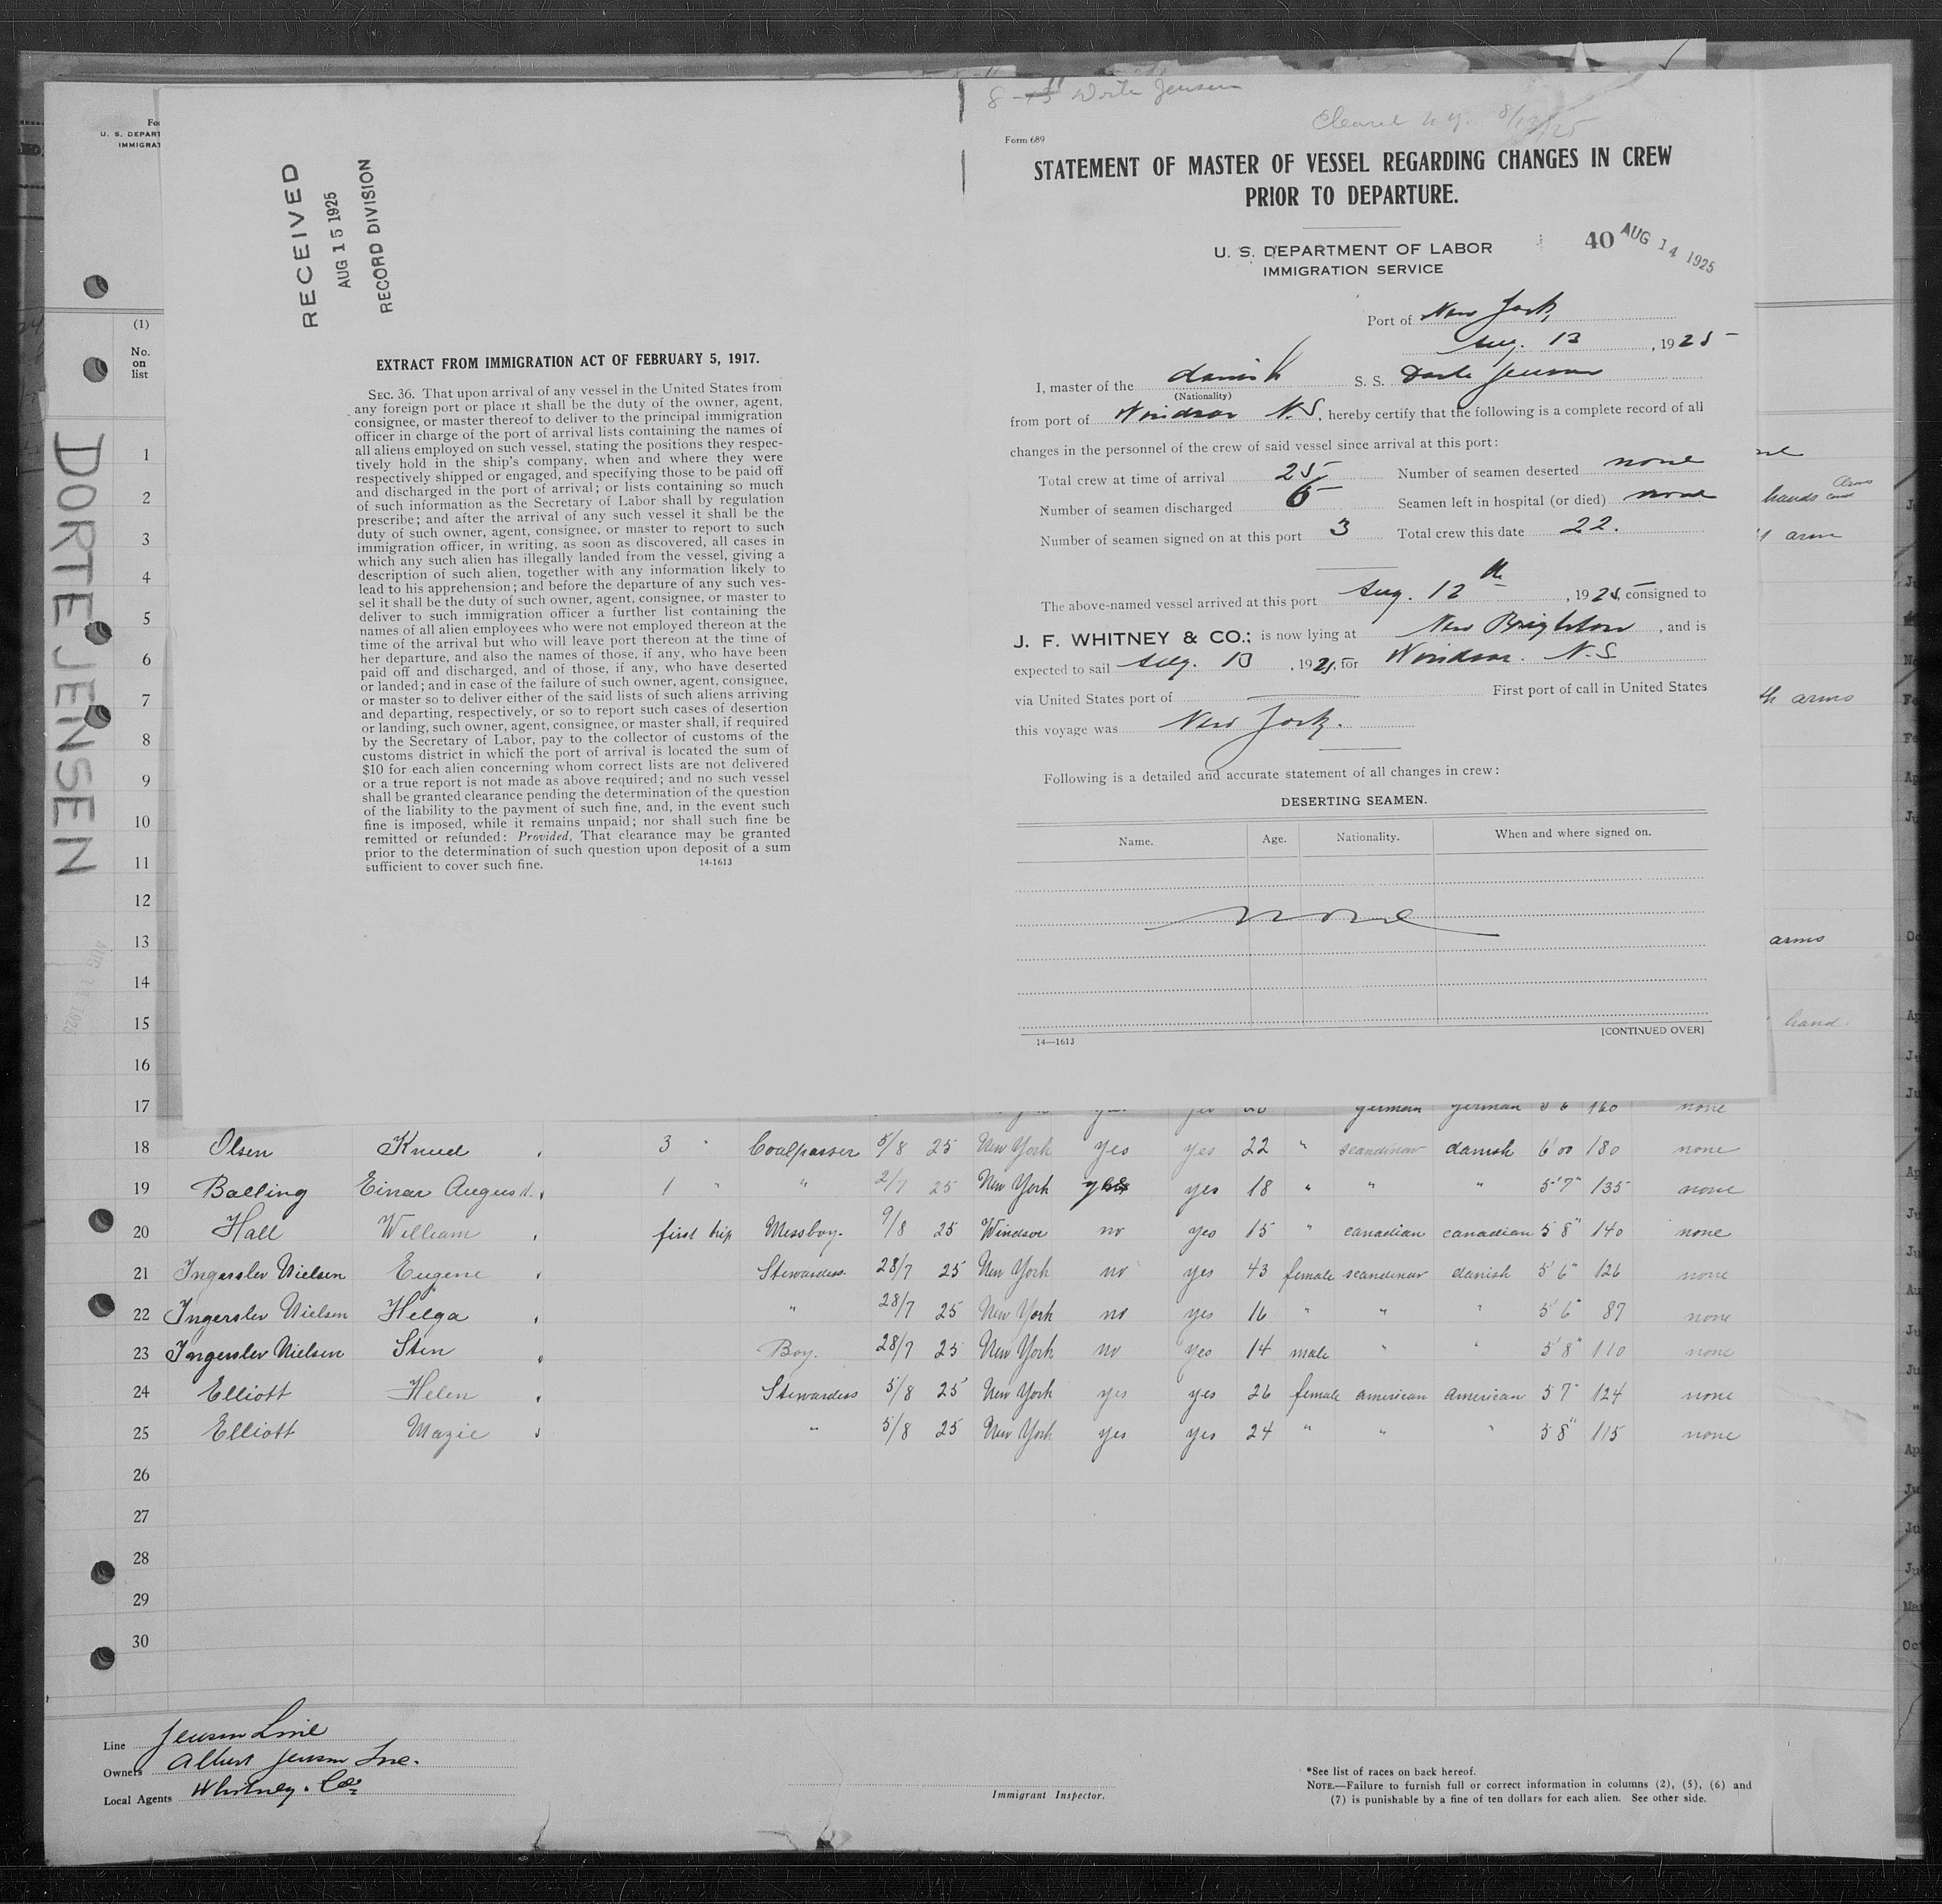 8-13 Dorte Jensen
Cleared N.Y. 8/13/25
Form 689
STATEMENT OF MASTER OF VESSEL REGARDING CHANGES IN CREW
PRIOR TO DEPARTURE.
U. S. DEPARTMENT OF LABOR
IMMIGRATION SERVICE
40 AUG 14 1925
Port of New York
Aug. 13, 1925
I, master of the danish S. S. Dorte Jensen
(Nationality)
from port of Windsor N.S., hereby certify that the following is a complete record of all
changes in the personnel of the crew of said vessel since arrival at this port:
Total crew at time of arrival 25 Number of seamen deserted none
Number of seamen discharged 6 Seamen left in hospital (or died) none
Number of seamen signed on at this port 3 Total crew this date 22.
The above-named vessel arrived at this port Aug. 12th, 1925, consigned to
J. F. WHITNEY & CO.; is now lying at New Brighton, and is
expected to sail Aug. 13, 1925, for Windsor. N.S.
via United States port of First port of call in United States
this voyage was New York.
Following is a detailed and accurate statement of all changes in crew:
DESERTING SEAMEN.
Name. Age. Nationality. When and where signed on.
none
[CONTINUED OVER]
14—1613
RECEIVED
AUG 15 1925
RECORD DIVISION
EXTRACT FROM IMMIGRATION ACT OF FEBRUARY 5, 1917.
SEC. 36. That upon arrival of any vessel in the United States from
any foreign port or place it shall be the duty of the owner, agent,
consignee, or master thereof to deliver to the principal immigration
officer in charge of the port of arrival lists containing the names of
all aliens employed on such vessel, stating the positions they respec-
tively hold in the ship's company, when and where they were
respectively shipped or engaged, and specifying those to be paid off
and discharged in the port of arrival; or lists containing so much
of such information as the Secretary of Labor shall by regulation
prescribe; and after the arrival of any such vessel it shall be the
duty of such owner, agent, consignee, or master to report to such
immigration officer, in writing, as soon as discovered, all cases in
which any such alien has illegally landed from the vessel, giving a
description of such alien, together with any information likely to
lead to his apprehension; and before the departure of any such ves-
sel it shall be the duty of such owner, agent, consignee, or master to
deliver to such immigration officer a further list containing the
names of all alien employees who were not employed thereon at the
time of the arrival but who will leave port thereon at the time of
her departure, and also the names of those, if any, who have been
paid off and discharged, and of those, if any, who have deserted
or landed; and in case of the failure of such owner, agent, consignee,
or master so to deliver either of the said lists of such aliens arriving
and departing, respectively, or so to report such cases of desertion
or landing, such owner, agent, consignee, or master shall, if required
by the Secretary of Labor, pay to the collector of customs of the
customs district in which the port of arrival is located the sum of
$10 for each alien concerning whom correct lists are not delivered
or a true report is not made as above required; and no such vessel
shall be granted clearance pending the determination of the question
of the liability to the payment of such fine, and, in the event such
fine is imposed, while it remains unpaid; nor shall such fine be
remitted or refunded: Provided, That clearance may be granted
prior to the determination of such question upon deposit of a sum
sufficient to cover such fine. 14-1613
U. S. DEPART
IMMIGRAT
DORTE JENSEN
(1)
No.
on
list
1
2 hands and arms
3 arm
4
5
6
7 arms
8
9
10
11
12
13 arms
14
15 hand.
16
17 german german 5 6 160 none
18 Olsen Knud 3 " Coalpasser 5/8 25 New York yes yes 22 " scandinav danish 6'00 180 none
19 Balling Einar August. 1 " " 2/7 25 New York yes yes 18 " " " 5'7" 135 none
20 Hall William first trip Messboy. 9/8 25 Windsor no yes 15 " canadian canadian 5 8" 140 none
21 Ingerslev Nielsen Eugene Stewardess. 28/7 25 New York no yes 43 female scandinav danish 5'6" 126 none
22 Ingerslev Nielsen Helga " 28/7 25 New York no yes 16 " " " 5'6" 87 none
23 Ingerslev Nielsen Sten Boy. 28/7 25 New York no yes 14 male " " 5'8" 110 none
24 Elliott Helen Stewardess 5/8 25 New York yes yes 26 female american american 5 7" 124 none
25 Elliott Mazie " 5/8 25 New York yes yes 24 " " " 5 8" 115 none
26
27
28
29
30
Line Jensen Line
Owners Albert Jensen Inc.
Local Agents Whitney. Co.
Immigrant Inspector.
*See list of races on back hereof.
NOTE.—Failure to furnish full or correct information in columns (2), (5), (6) and
(7) is punishable by a fine of ten dollars for each alien. See other side.